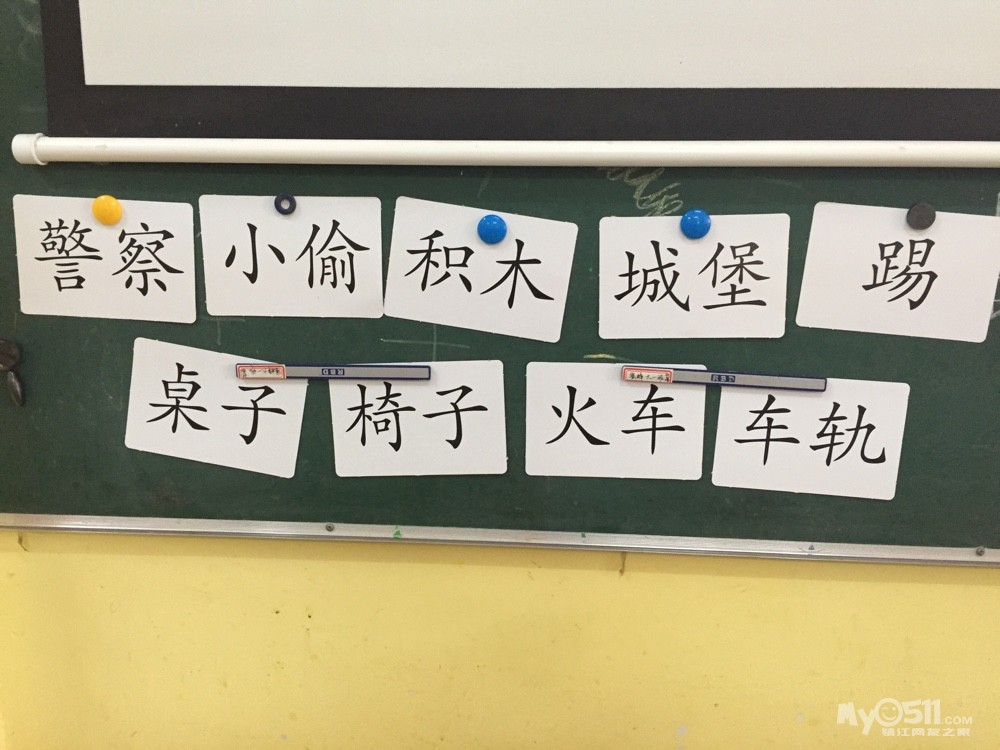 警察 小偷 积木 城堡 踢
桌子 椅子 火车 车轨
My0511.COM
镇江网友之家